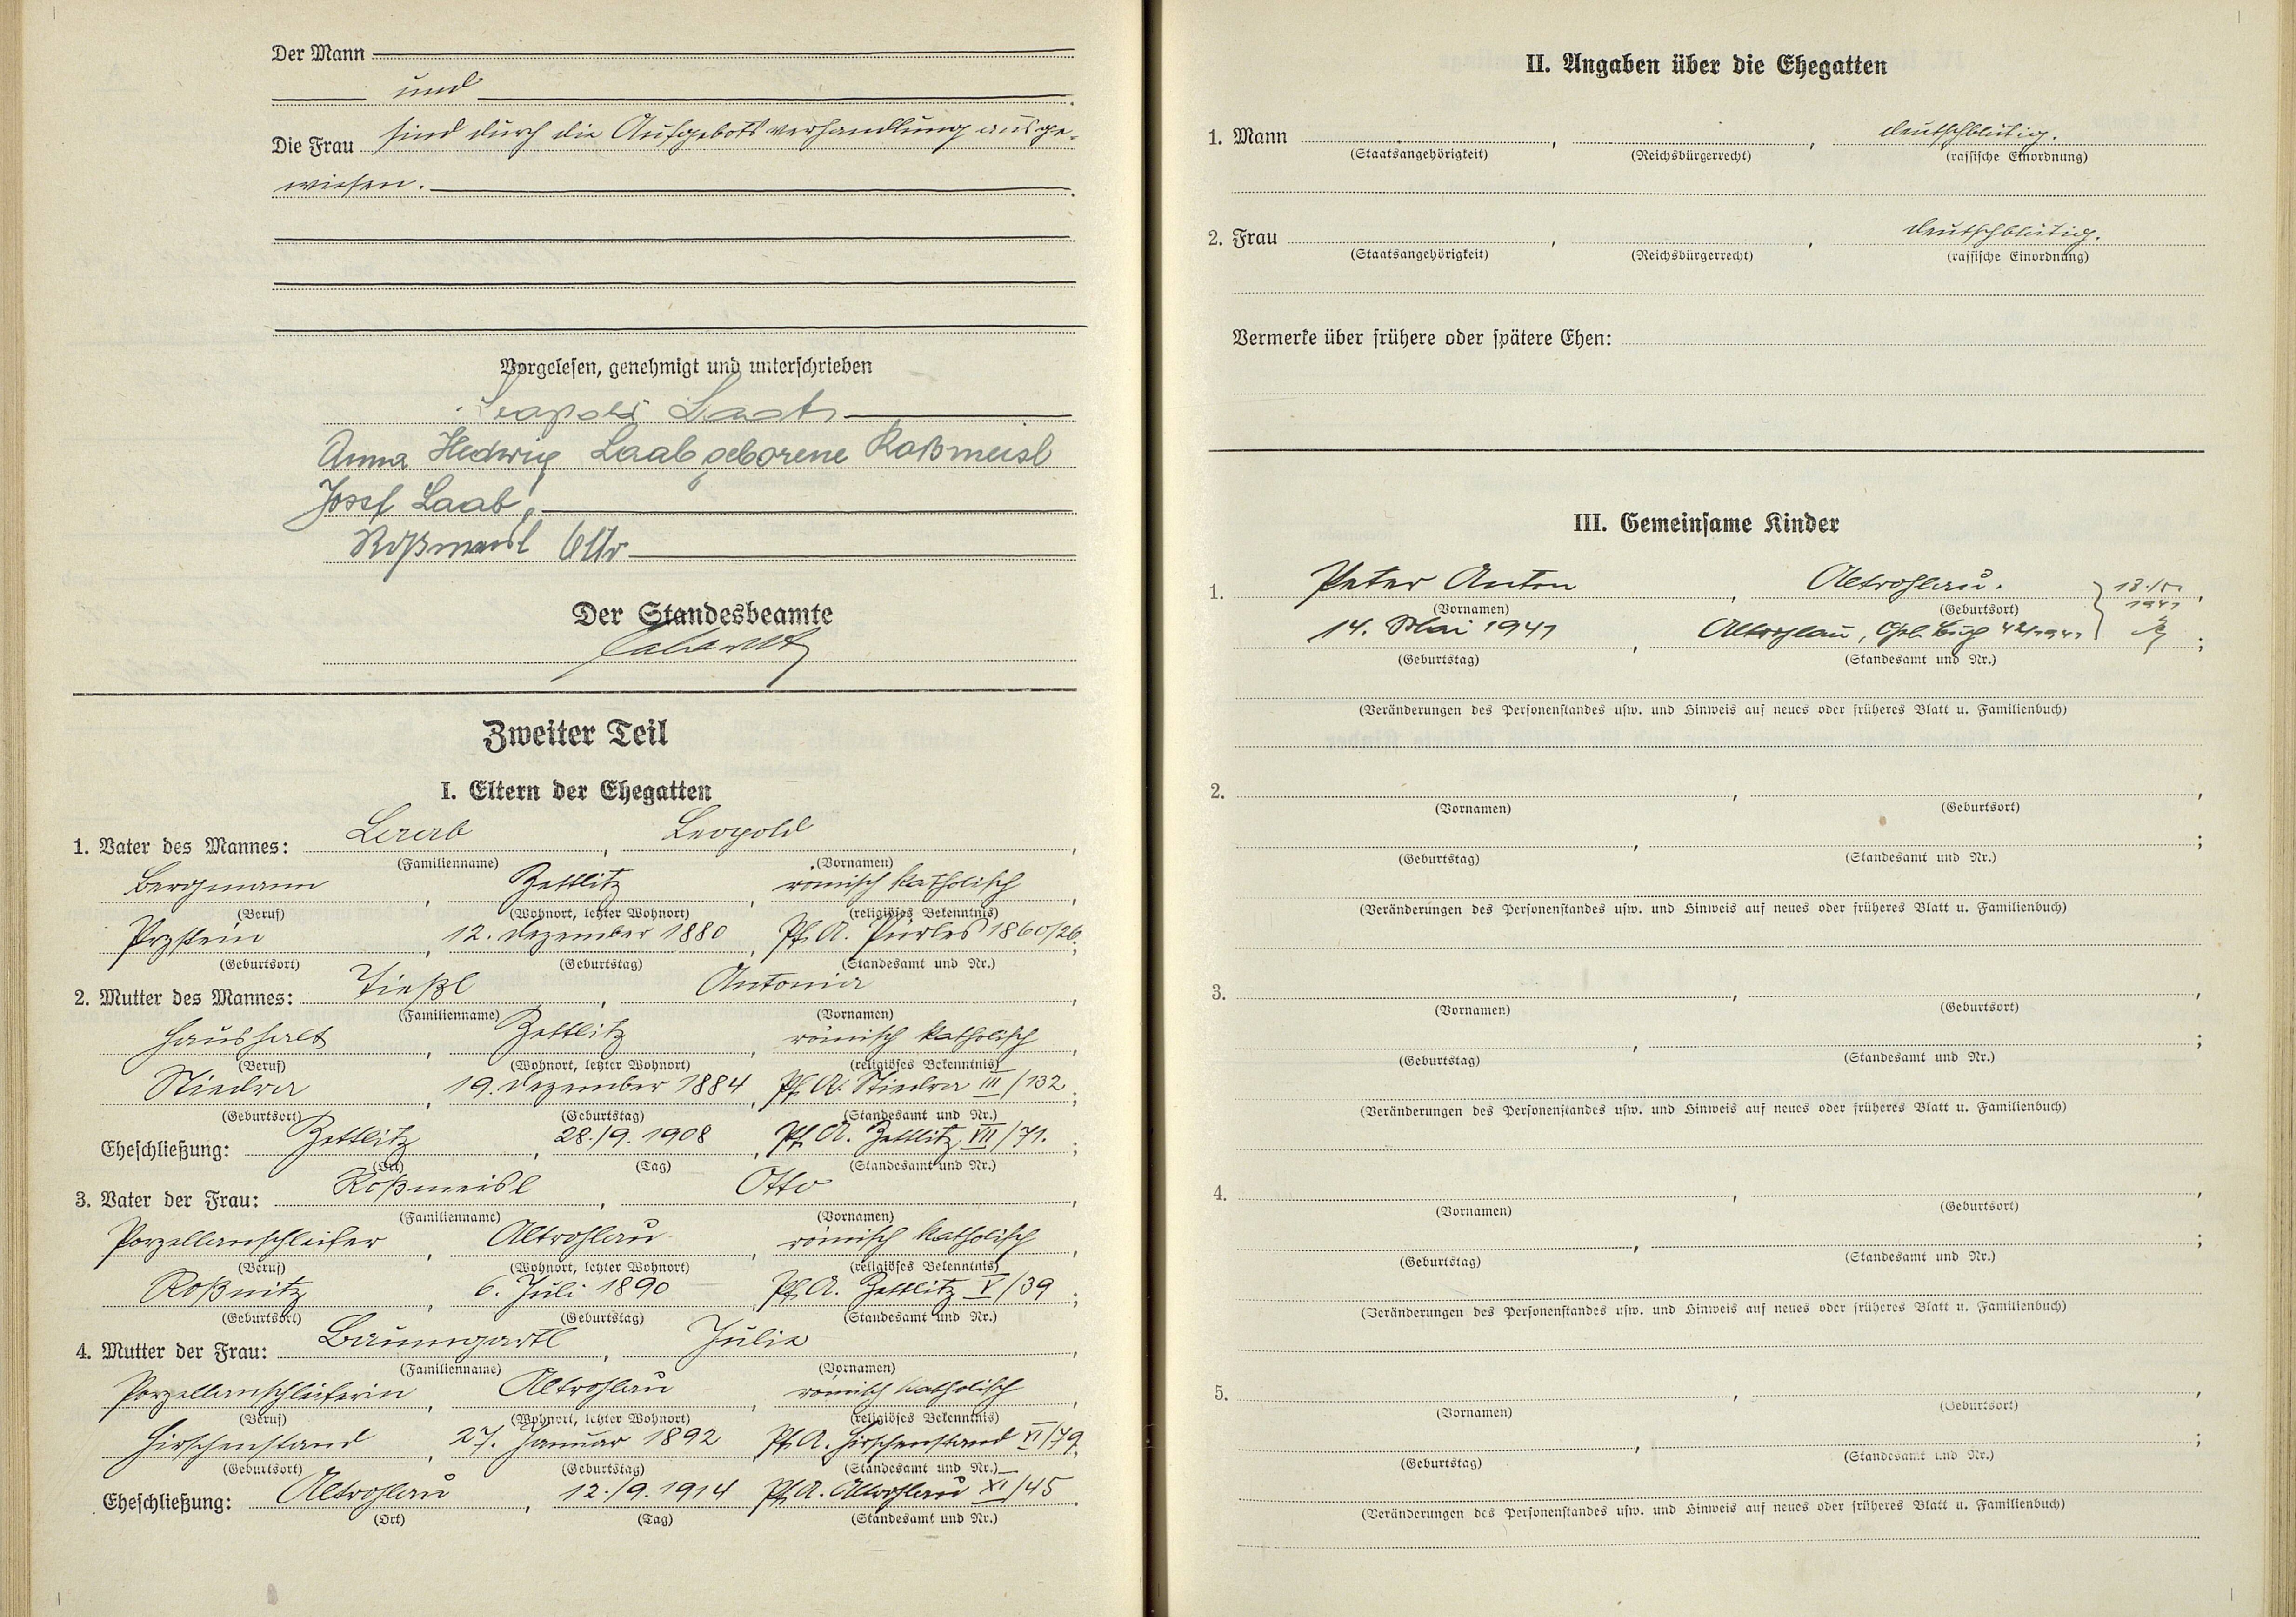 Der Mann
und
Die Frau sind durch die Aufgebotsverhandlung ausge-
wiesen.
Vorgelesen, genehmigt und unterschrieben
Leopold Laab
Anna Hedwig Laab geborene Roßmeisl
Josef Laab
Roßmeisl Otto
Der Standesbeamte
Zweiter Teil
I. Eltern der Ehegatten
1. Vater des Mannes: Laab, Leopold,
(Familienname) (Vornamen)
Bergmann, Zettlitz, römisch katholisch,
(Beruf) (Wohnort, letzter Wohnort) (religiöses Bekenntnis)
12. Dezember 1880, Pf. A. Purles 1860/26;
(Geburtsort) (Geburtstag) (Standesamt und Nr.)
2. Mutter des Mannes: Antonia,
(Familienname) (Vornamen)
Haushalt, Zettlitz, römisch katholisch,
(Beruf) (Wohnort, letzter Wohnort) (religiöses Bekenntnis)
Stiedra, 19. Dezember 1884, Pf. A. Stiedra III/132;
(Geburtsort) (Geburtstag) (Standesamt und Nr.)
Eheschließung: Zettlitz, 28./9. 1908, Pf. A. Zettlitz VII/71.;
(Ort) (Tag) (Standesamt und Nr.)
3. Vater der Frau: Roßmeisl, Otto,
(Familienname) (Vornamen)
Porzellanschleifer, Altrohlau, römisch katholisch,
(Beruf) (Wohnort, letzter Wohnort) (religiöses Bekenntnis)
Roßnitz, 6. Juli 1890, Pf. A. Zettlitz V/39;
(Geburtsort) (Geburtstag) (Standesamt und Nr.)
4. Mutter der Frau: Baumgartl, Julie,
(Familienname) (Vornamen)
Porzellanschleiferin, Altrohlau, römisch katholisch,
(Beruf) (Wohnort, letzter Wohnort) (religiöses Bekenntnis)
Hirschenstand, 27. Januar 1892, Pf. A. Hirschenstand VI/79;
(Geburtsort) (Geburtstag) (Standesamt und Nr.)
Eheschließung: Altrohlau, 12./9. 1914 Pf. A. Altrohlau XI/45.
(Ort) (Tag) (Standesamt und Nr.)
II. Angaben über die Ehegatten
1. Mann , , deutschblütig.
(Staatsangehörigkeit) (Reichsbürgerrecht) (rassische Einordnung)
2. Frau , , deutschblütig.
(Staatsangehörigkeit) (Reichsbürgerrecht) (rassische Einordnung)
Vermerke über frühere oder spätere Ehen:
III. Gemeinsame Kinder
1. Peter Anton, Altrohlau.,
(Vornamen) (Geburtsort)
1941
14. Mai 1941, Altrohlau, ;
(Geburtstag) (Standesamt und Nr.)
(Veränderungen des Personenstandes usw. und Hinweis auf neues oder früheres Blatt u. Familienbuch)
2. , ,
(Vornamen) (Geburtsort)
, ;
(Geburtstag) (Standesamt und Nr.)
(Veränderungen des Personenstandes usw. und Hinweis auf neues oder früheres Blatt u. Familienbuch)
3. , ,
(Vornamen) (Geburtsort)
, ;
(Geburtstag) (Standesamt und Nr.)
(Veränderungen des Personenstandes usw. und Hinweis auf neues oder früheres Blatt u. Familienbuch)
4. , ,
(Vornamen) (Geburtsort)
, ;
(Geburtstag) (Standesamt und Nr.)
(Veränderungen des Personenstandes usw. und Hinweis auf neues oder früheres Blatt u. Familienbuch)
5. , ,
(Vornamen) (Geburtsort)
, ;
(Geburtstag) (Standesamt und Nr.)
(Veränderungen des Personenstandes usw. und Hinweis auf neues oder früheres Blatt u. Familienbuch)